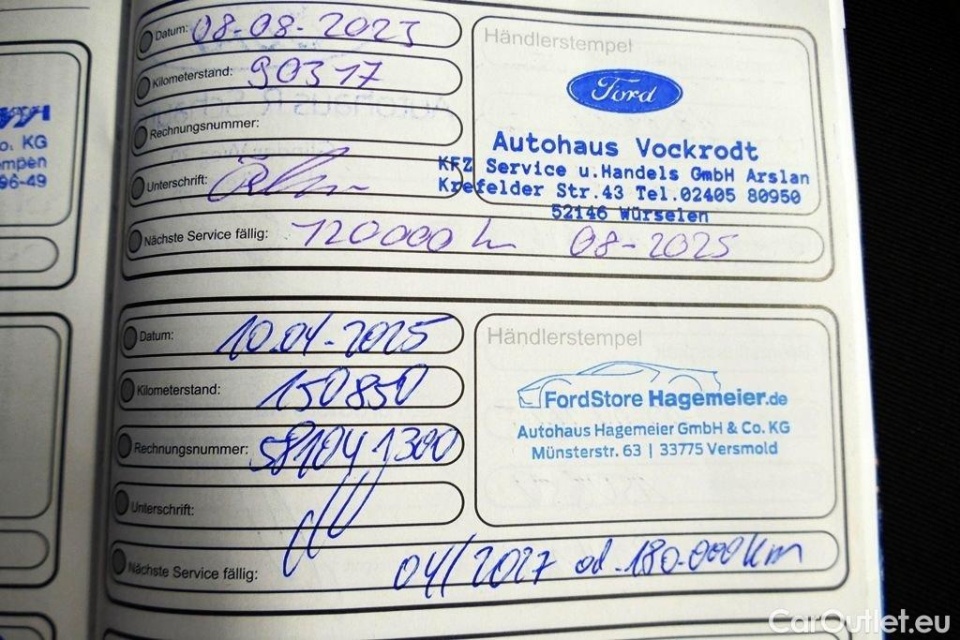 o. KG
mpen
96-49
Datum: 08-08-2023
Kilometerstand: 90317
Rechnungsnummer:
Unterschrift:
Händlerstempel
Ford
Autohaus Vockrodt
KFZ Service u.Handels GmbH Arslan
Krefelder Str.43 Tel.02405 80950
52146 Würselen
Nächste Service fällig: 120000 km 08-2025
Datum: 10.04-2025
Kilometerstand: 150850
Rechnungsnummer: 581041300
Unterschrift:
Händlerstempel
FordStore Hagemeier.de
Autohaus Hagemeier GmbH & Co. KG
Münsterstr. 63 | 33775 Versmold
Nächste Service fällig: 04/2027 od. 180.000km
CarOutlet.eu